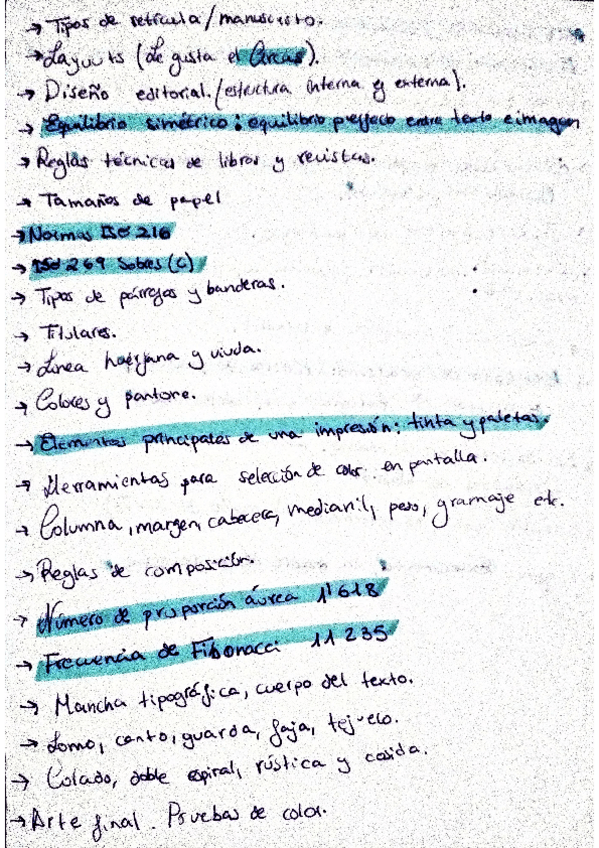 → Tipos de retícula/manuscrito.
→ Layouts (Le gusta el Areas).
→ Diseño editorial. (estructura interna y externa).
→ Equilibrio simétrico: equilibrio perfecto entre texto e imagen
→ Reglas técnicas de libros y revistas.
→ Tamaños de papel
→ Normas ISO 216
→ ISO 269 Sobres (C)
→ Tipos de párrafos y banderas.
→ Titulares.
→ Línea huérfana y viuda.
→ Colores y pantone.
→ Elementos principales de una impresión: tinta y paletas.
→ Herramientas para selección de color en pantalla.
→ Columna, margen, cabecera, medianil, peso, gramaje etc.
→ Reglas de composición.
→ Número de proporción áurea 1'618
→ Frecuencia de Fibonacci 11235
→ Mancha tipográfica, cuerpo del texto.
→ Lomo, canto, guarda, faja, tejuelo.
→ Colado, doble espiral, rústica y cosida.
→ Arte final. Pruebas de color.